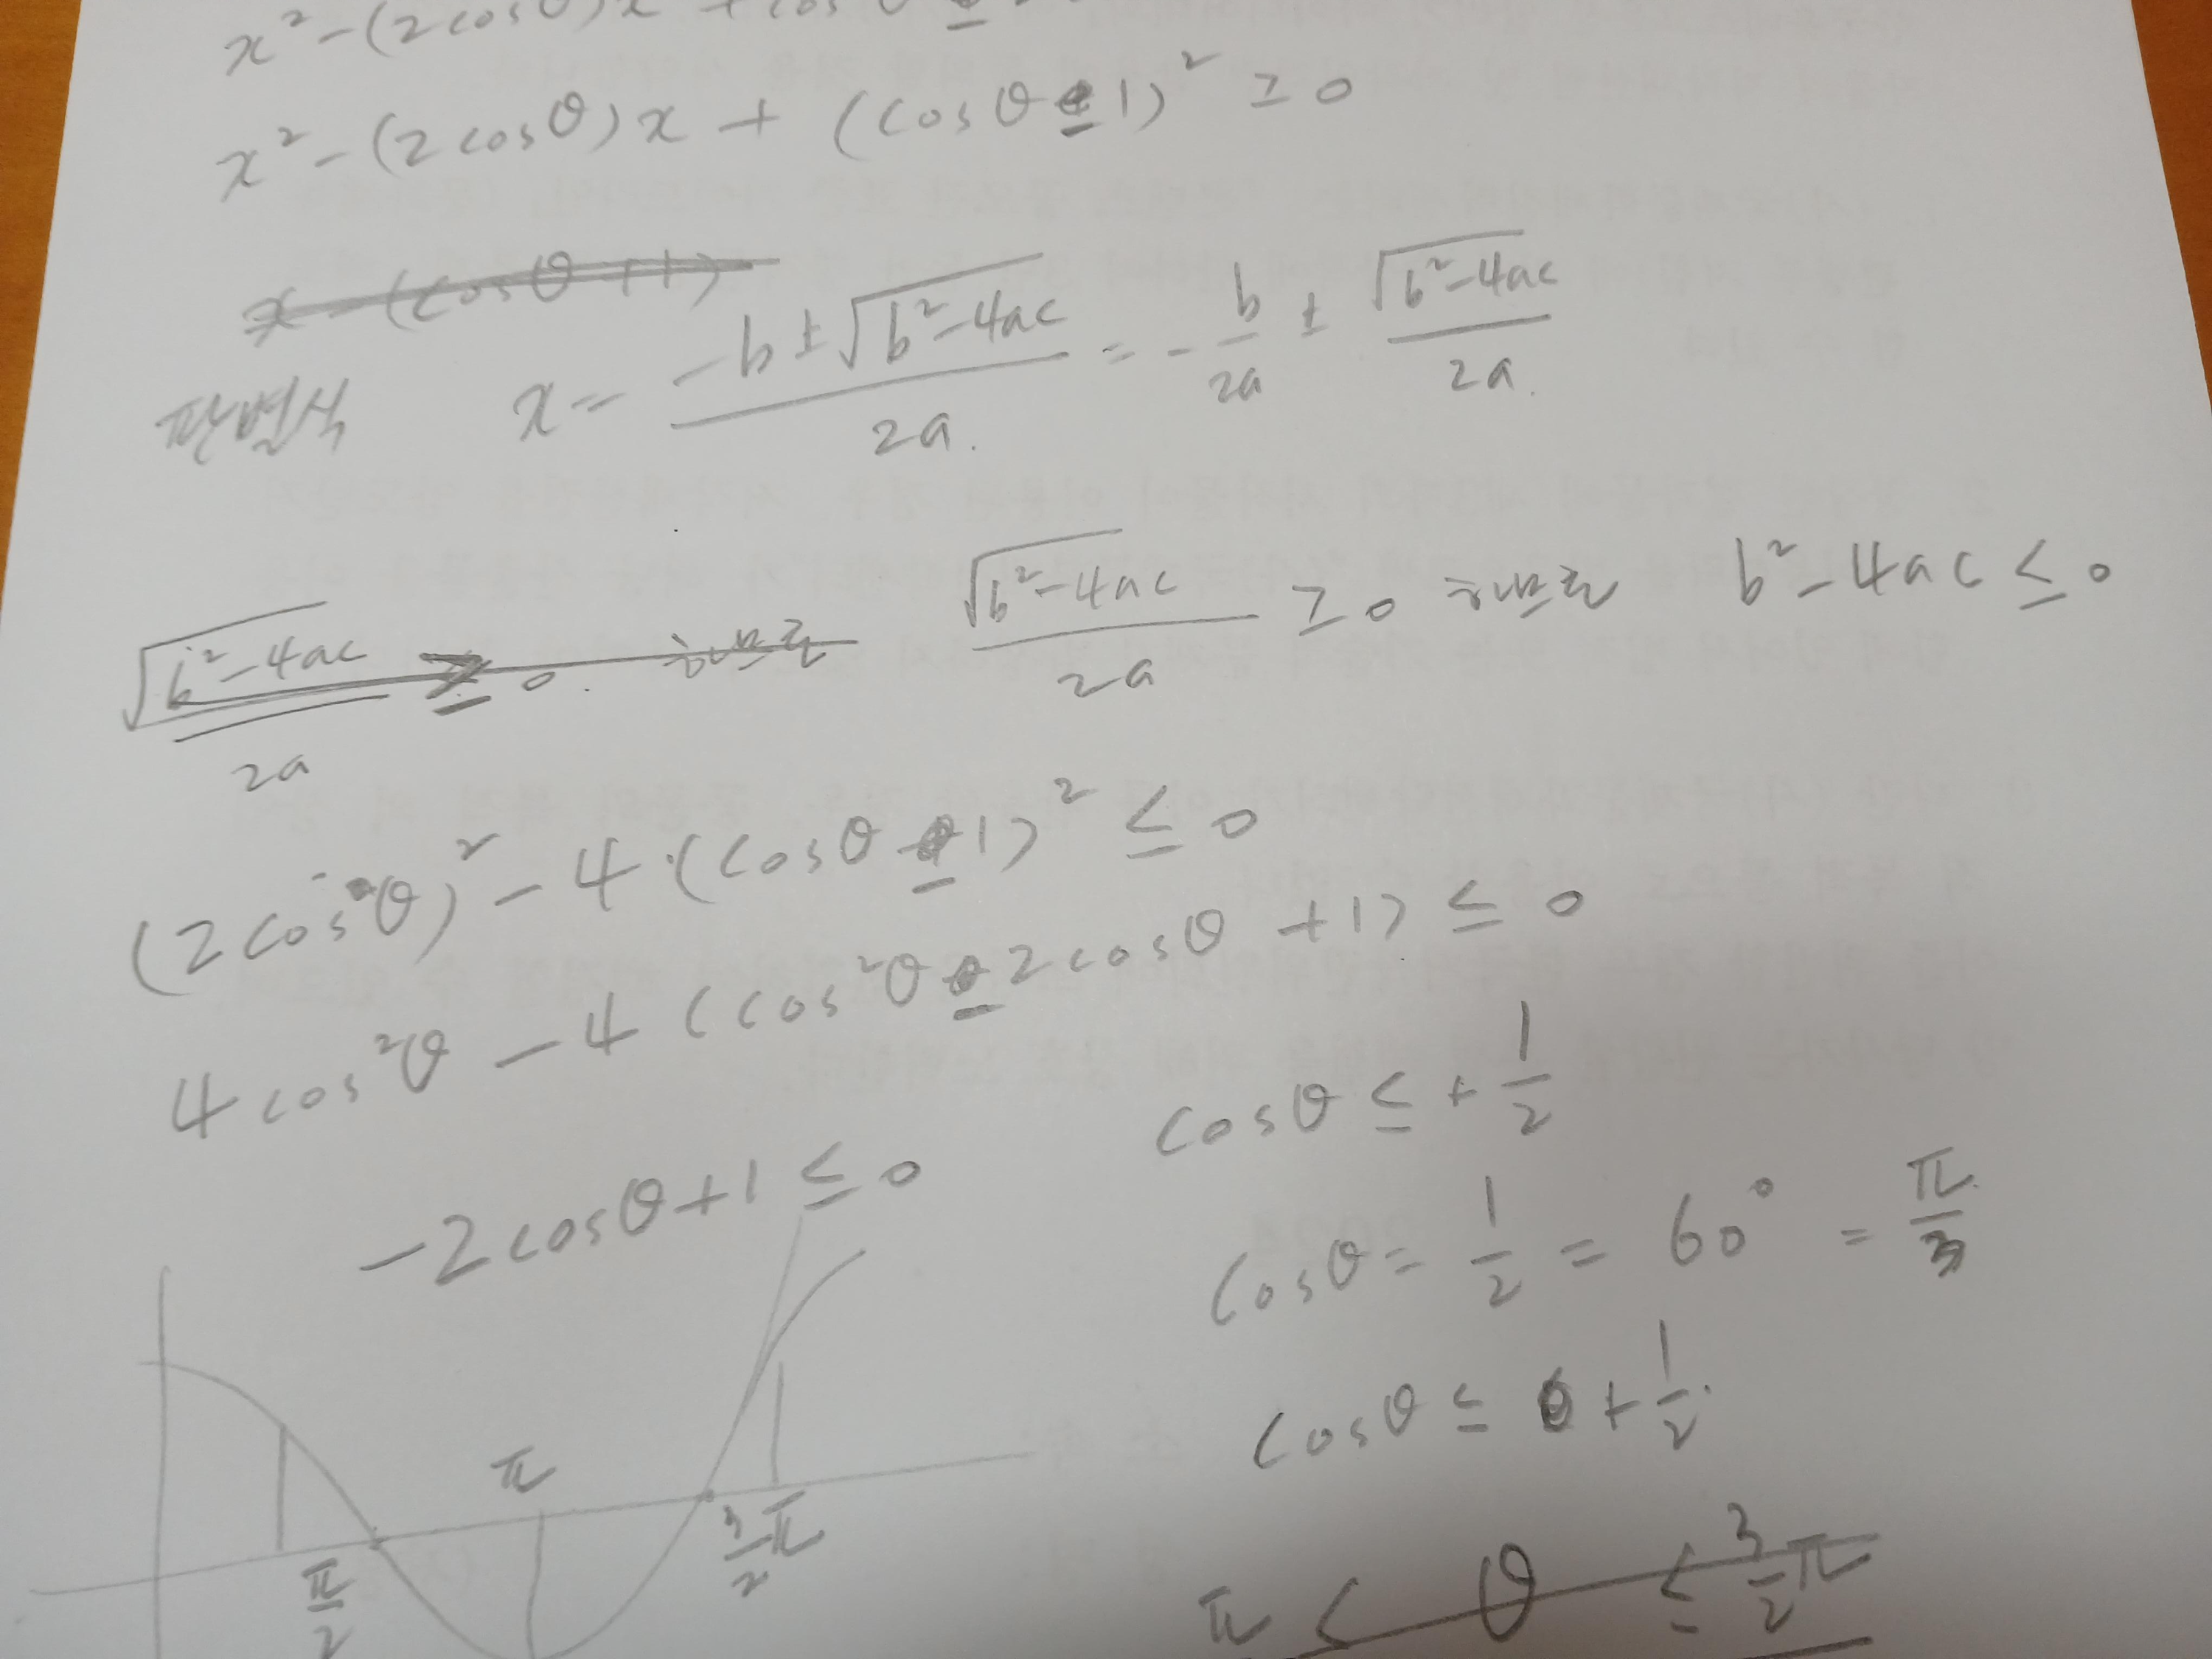 x² - (2cosθ)x + cos
x² - (2cosθ)x + (cosθ - 1)² ≥ 0
x - (cosθ + 1)
판별식 x = (-b ± √(b²-4ac)) / 2a. = - b/2a ± √(b²-4ac) / 2a.
√(b²-4ac) / 2a ≥ 0. 하므로 √(b²-4ac) / 2a ≥ 0 하므로 b² - 4ac ≤ 0
(2cosθ)² - 4·(cosθ - 1)² ≤ 0
4cos²θ - 4(cos²θ - 2cosθ + 1) ≤ 0
-2cosθ + 1 ≤ 0
cosθ ≤ + 1/2
cosθ = 1/2 = 60° = π/3
cosθ ≤ + 1/2.
π ≤ θ ≤ 3/2 π
π/2 π 3/2 π